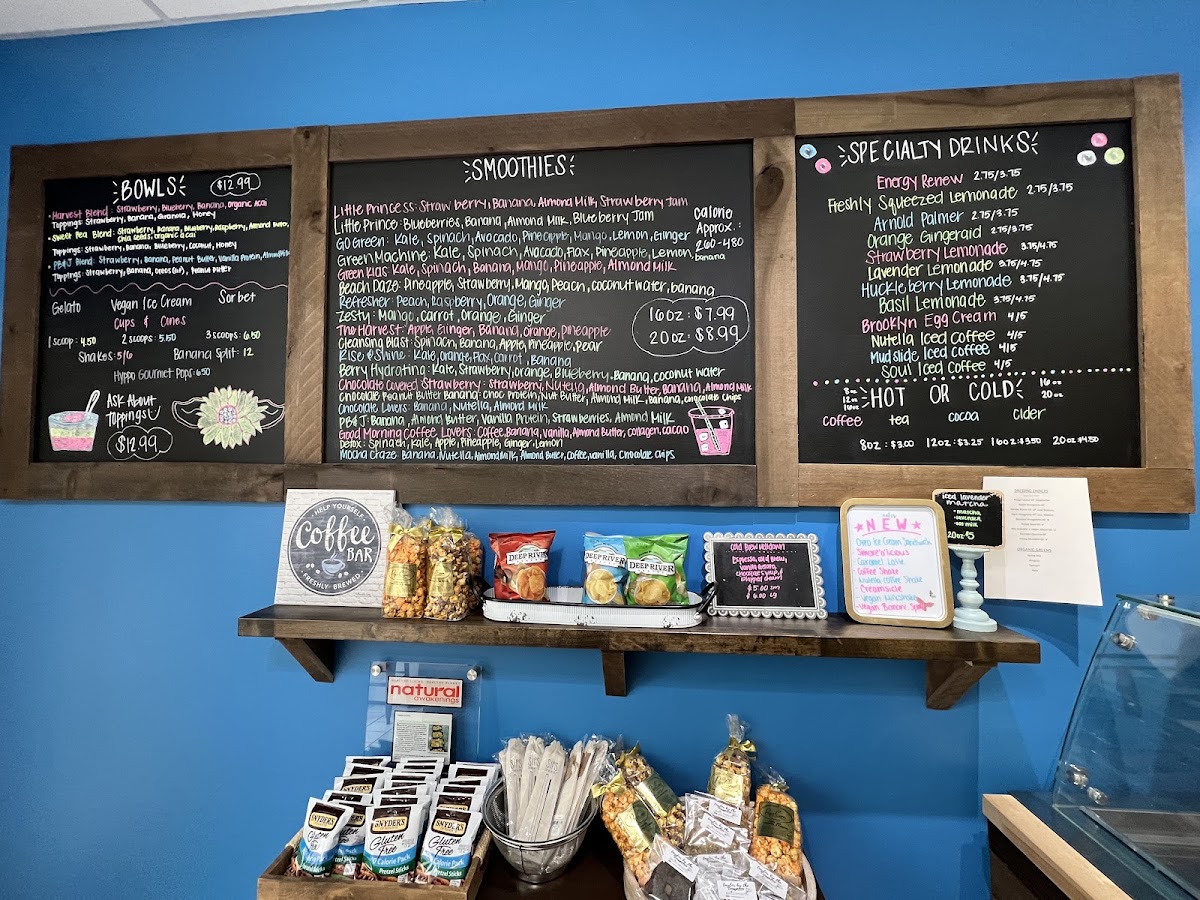 BOWLS
$12.99
• Harvest Blend: Strawberry, Blueberry, Banana, Organic acai
Toppings: Strawberry, Banana, Granola, Honey
• Sweet Pea Blend: Strawberry, Banana, Blueberry, Raspberry, Almond Butter,
chia seeds, organic acai
Toppings: Strawberry, Banana, Blueberry, Coconut, Honey
• PB&J Blend: Strawberry, Banana, Peanut Butter, Vanilla Protein, Almond Milk
Toppings: Strawberry, Banana, Peanut Butter
Gelato Vegan Ice Cream Sorbet
Cups & Cones
1 scoop: 4.50 2 scoops: 5.50 3 scoops: 6.50
Shakes: 5/6 Banana Split: 12
Hyppo Gourmet Pops: 6.50
ASK About
Toppings
$12.99
SMOOTHIES
Little Princess: Strawberry, Banana, Almond Milk, Strawberry Jam
Little Prince: Blueberries, Banana, Almond Milk, Blueberry Jam
GO Green: Kale, Spinach, Avocado, Pineapple, Mango, Lemon, Ginger
Green Machine: Kale, Spinach, Avocado, Flax, Pineapple, Lemon, banana
Green Kids: Kale, Spinach, Banana, Mango, Pineapple, Almond Milk
Beach Daze: Pineapple, Strawberry, Mango, Peach, coconut water, banana
Refresher: Peach, Raspberry, Orange, Ginger
Zesty: Mango, Carrot, Orange, Ginger
The Harvest: Apple, Ginger, Banana, Orange, Pineapple
Cleansing Blast: Spinach, Banana, Apple, Pineapple, Pear
Rise & Shine: Kale, Orange, Flax, Carrot, Banana
Berry Hydrating: Kale, Strawberry, Orange, Blueberry, Banana, coconut water
Chocolate Covered Strawberry: Strawberry, Nutella, Almond Butter, Banana, Almond Milk
Chocolate Peanut Butter Banana: Choc Protein, Nut Butter, Almond Milk, Banana, chocolate chips
Chocolate Lovers: Banana, Nutella, Almond Milk
PB&J: Banana, Almond Butter, Vanilla Protein, Strawberries, Almond Milk
Good Morning Coffee Lovers: Coffee, Banana, Vanilla, Almond Butter, collagen, cacao
Detox: Spinach, Kale, Apple, Pineapple, Ginger, Lemon
Mocha Craze: Banana, Nutella, Almond Milk, Almond Butter, Coffee, vanilla, Chocolate Chips
calorie
Approx.:
260-480
16oz: $7.99
20oz: $8.99
SPECIALTY DRINKS
Energy Renew 2.75/3.75
Freshly Squeezed Lemonade 2.75/3.75
Arnold Palmer 2.75/3.75
Orange Gingeraid 2.75/3.75
Strawberry Lemonade 3.75/4.75
Lavender Lemonade 3.75/4.75
Huckleberry Lemonade 3.75/4.75
Basil Lemonade 3.75/4.75
Brooklyn Egg Cream 4/5
Nutella Iced Coffee 4/5
Mudslide Iced Coffee 4/5
Soul Iced Coffee 4/5
8oz
12oz
16oz
HOT OR COLD
16oz
20oz
coffee tea cocoa cider
8oz: $3.00 12oz: $3.25 16oz: $3.50 20oz $4.50
HELP YOURSELF
Coffee
BAR
FRESHLY BREWED
DEEP RIVER
DEEP RIVER
DEEP RIVER
Cold Brew Meltdown!
Espresso, cold brew,
vanilla gelato,
chocolate syrup, &
whipped cream!
$5.00 sm
$6.00 lg
NEW
Oreo Ice Cream Sandwich
Smore'a'licious
Caramel Latte
Coffee Shake
Nutella Coffee Shake
Creamsicle
Vegan Milkshake
Vegan Banana Split
Iced Lavender
Matcha
• Matcha
• Lavender
20oz $5
natural
awakenings
SNYDER'S
Gluten
Free
Calorie Pack
Pretzel Sticks
SNYDER'S
Gluten
Free
100 Calorie Pack
Pretzel Sticks
SNYDER'S
Gluten
Free
Calorie Pack
Pretzel Sticks